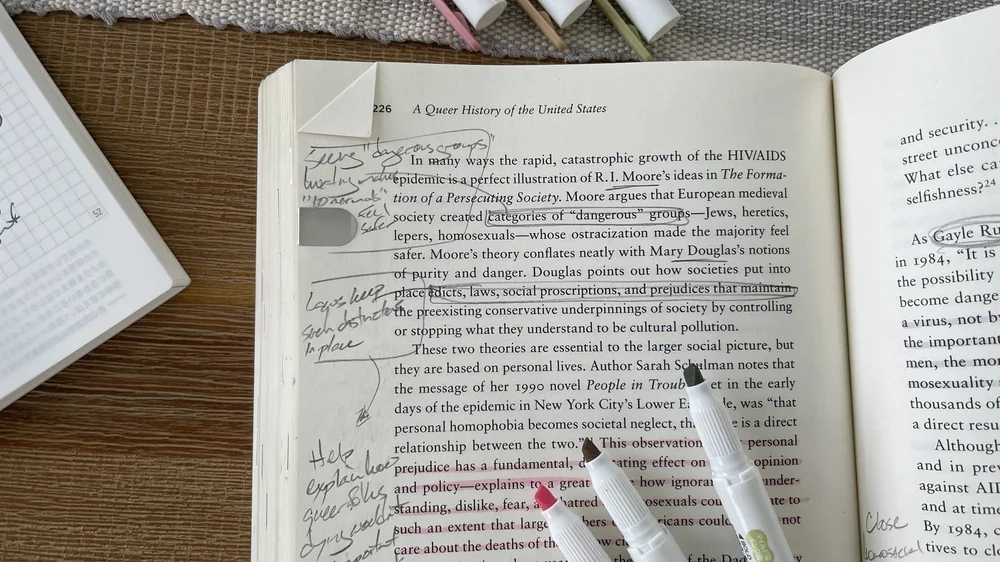 226 A Queer History of the United States
In many ways the rapid, catastrophic growth of the HIV/AIDS
epidemic is a perfect illustration of R.I. Moore's ideas in The Forma-
tion of a Persecuting Society. Moore argues that European medieval
society created categories of "dangerous" groups—Jews, heretics,
lepers, homosexuals—whose ostracization made the majority feel
safer. Moore's theory conflates neatly with Mary Douglas's notions
of purity and danger. Douglas points out how societies put into
place edicts, laws, social proscriptions, and prejudices that maintain
the preexisting conservative underpinnings of society by controlling
or stopping what they understand to be cultural pollution.
These two theories are essential to the larger social picture, but
they are based on personal lives. Author Sarah Schulman notes that
the message of her 1990 novel People in Troub et in the early
days of the epidemic in New York City's Lower Ea de, was "that
personal homophobia becomes societal neglect, th e is a direct
relationship between the two." This observation personal
prejudice has a fundamental, d ating effect on opinion
and policy—explains to a great how ignoran under-
standing, dislike, fear, a hatred osexuals cou te to
such an extent that large bers ericans could not
care about the deaths of th w ci
the f the Dad
Seeing "dangerous groups"
"normal"
feel
safer
Laws keep
such distinctions
in place
Help
explain how
queer folks
dying wouldn't
52
and security. . .
street unconc
What else ca
selfishness?24
As Gayle Ru
in 1984, "It is
the possibility
become dange
a virus, not by
the important
men, the mor
mosexuality
thousands of
a direct resu
Although
and in prev
against AI
and at time
By 1984, c
tives to clo
Close